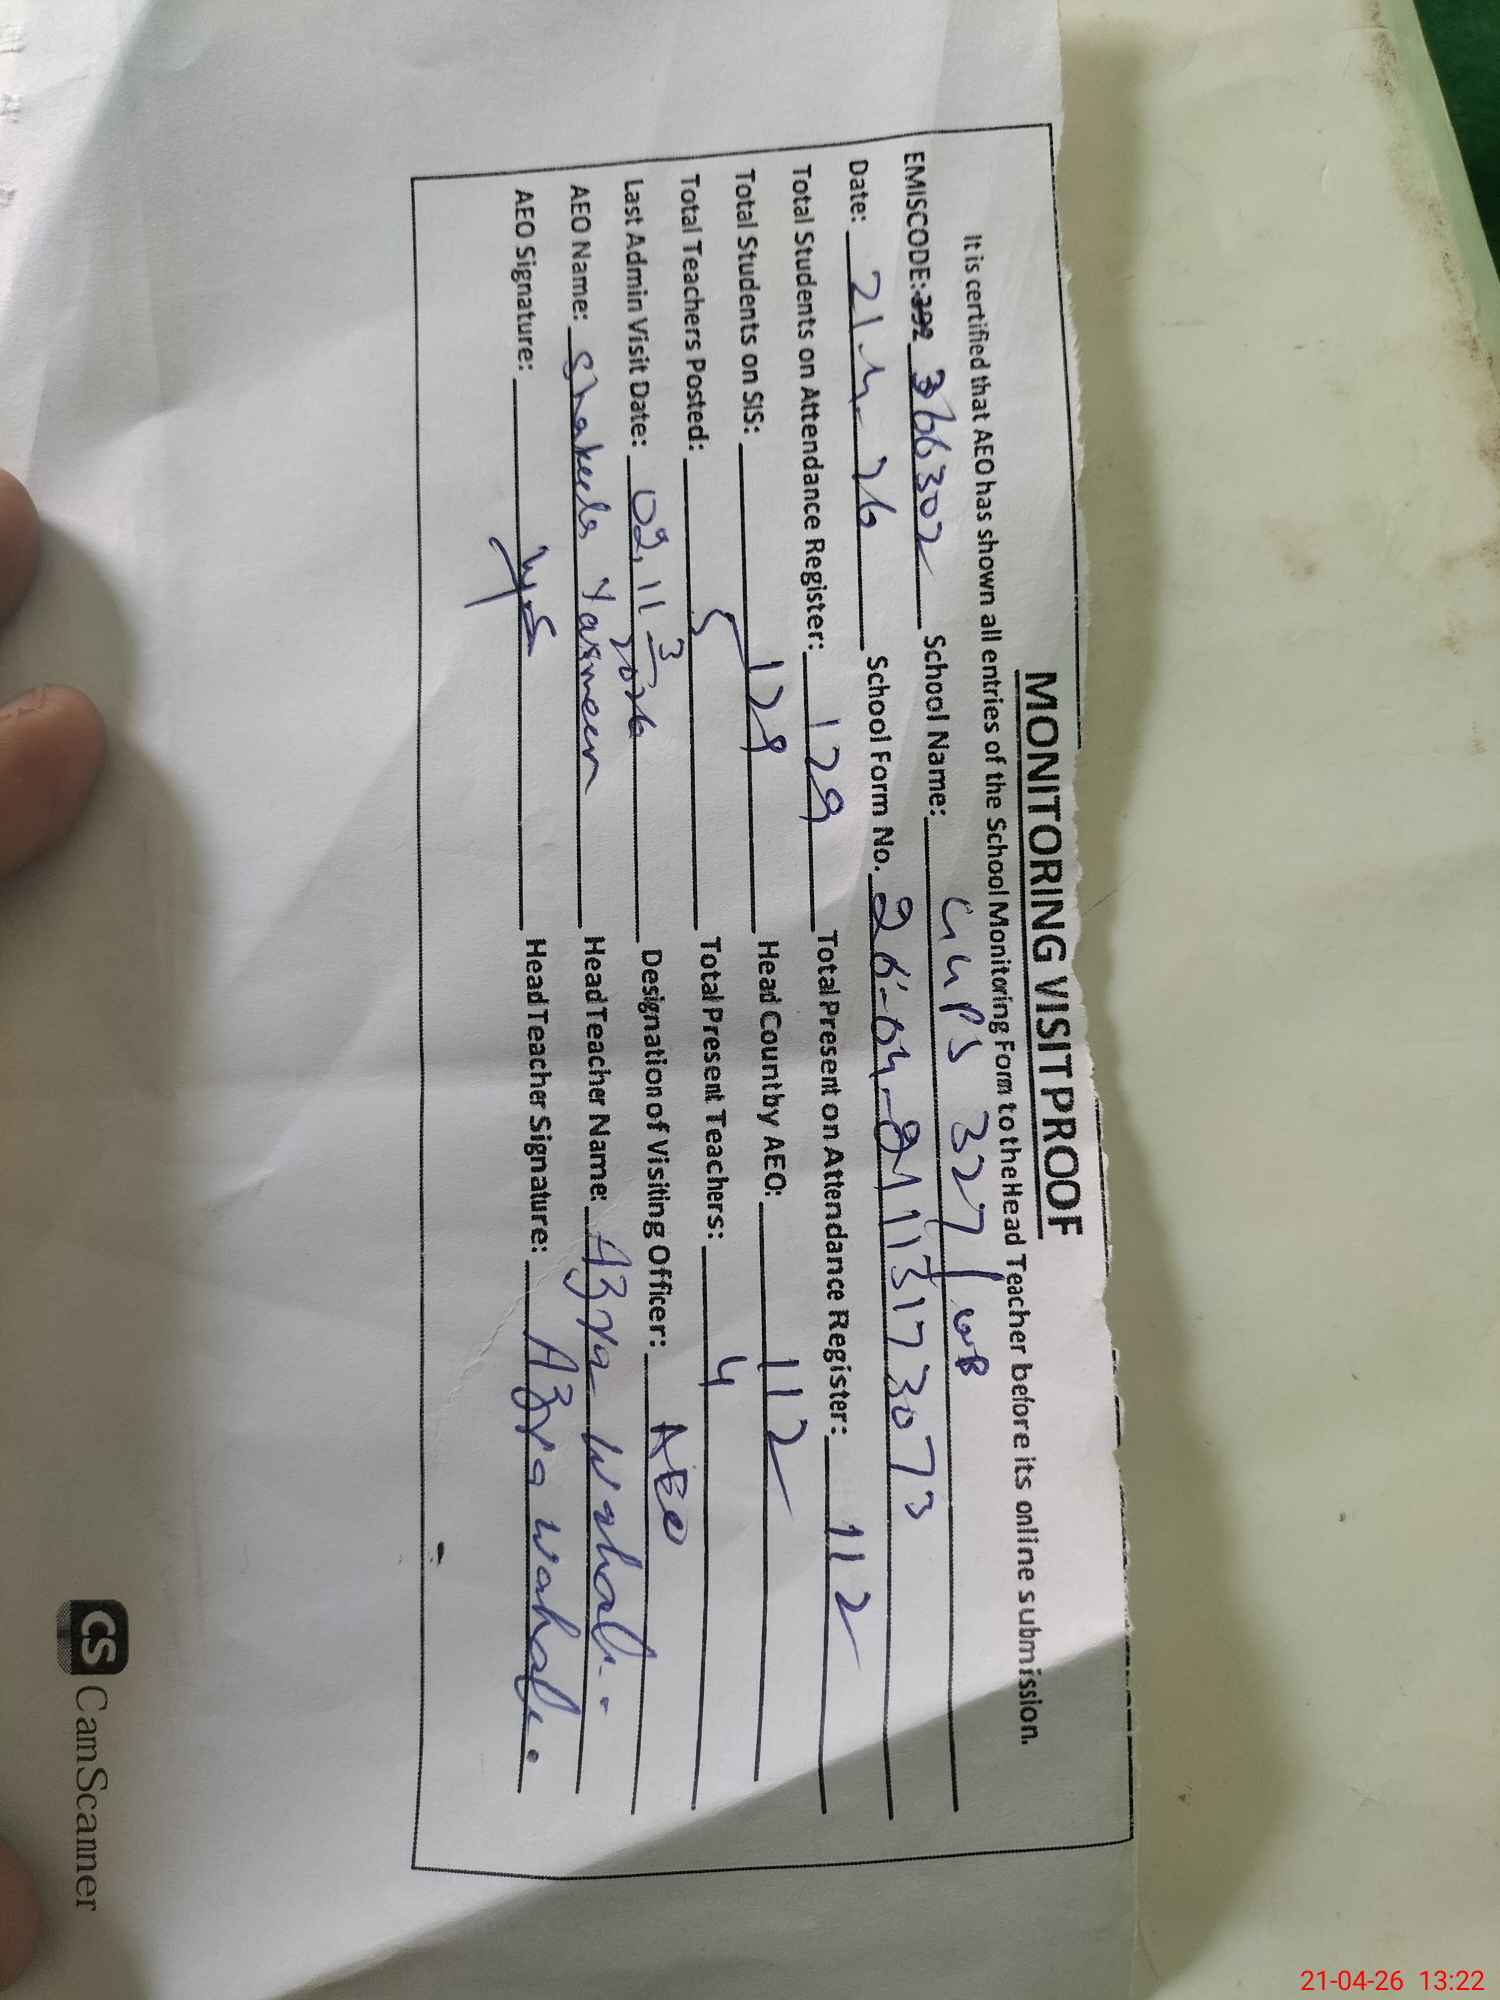 MONITORING VISIT PROOF
It is certified that AEO has shown all entries of the School Monitoring Form to the Head Teacher before its online submission.
EMISCODE: 366302 School Name: GGPS 327/WB
Date: 21-4-26 School Form No. 26-04-2113173073
Total Students on Attendance Register: 129 Total Present on Attendance Register: 112
Total Students on SIS: 129 Head Count by AEO: 112
Total Teachers Posted: 5 Total Present Teachers: 4
Last Admin Visit Date: Designation of Visiting Officer: AEO
AEO Name: Shakeela Yasmeen Head Teacher Name: Azra Wahab
AEO Signature: Head Teacher Signature: Azra Wahab
CS CamScanner
21-04-26 13:22